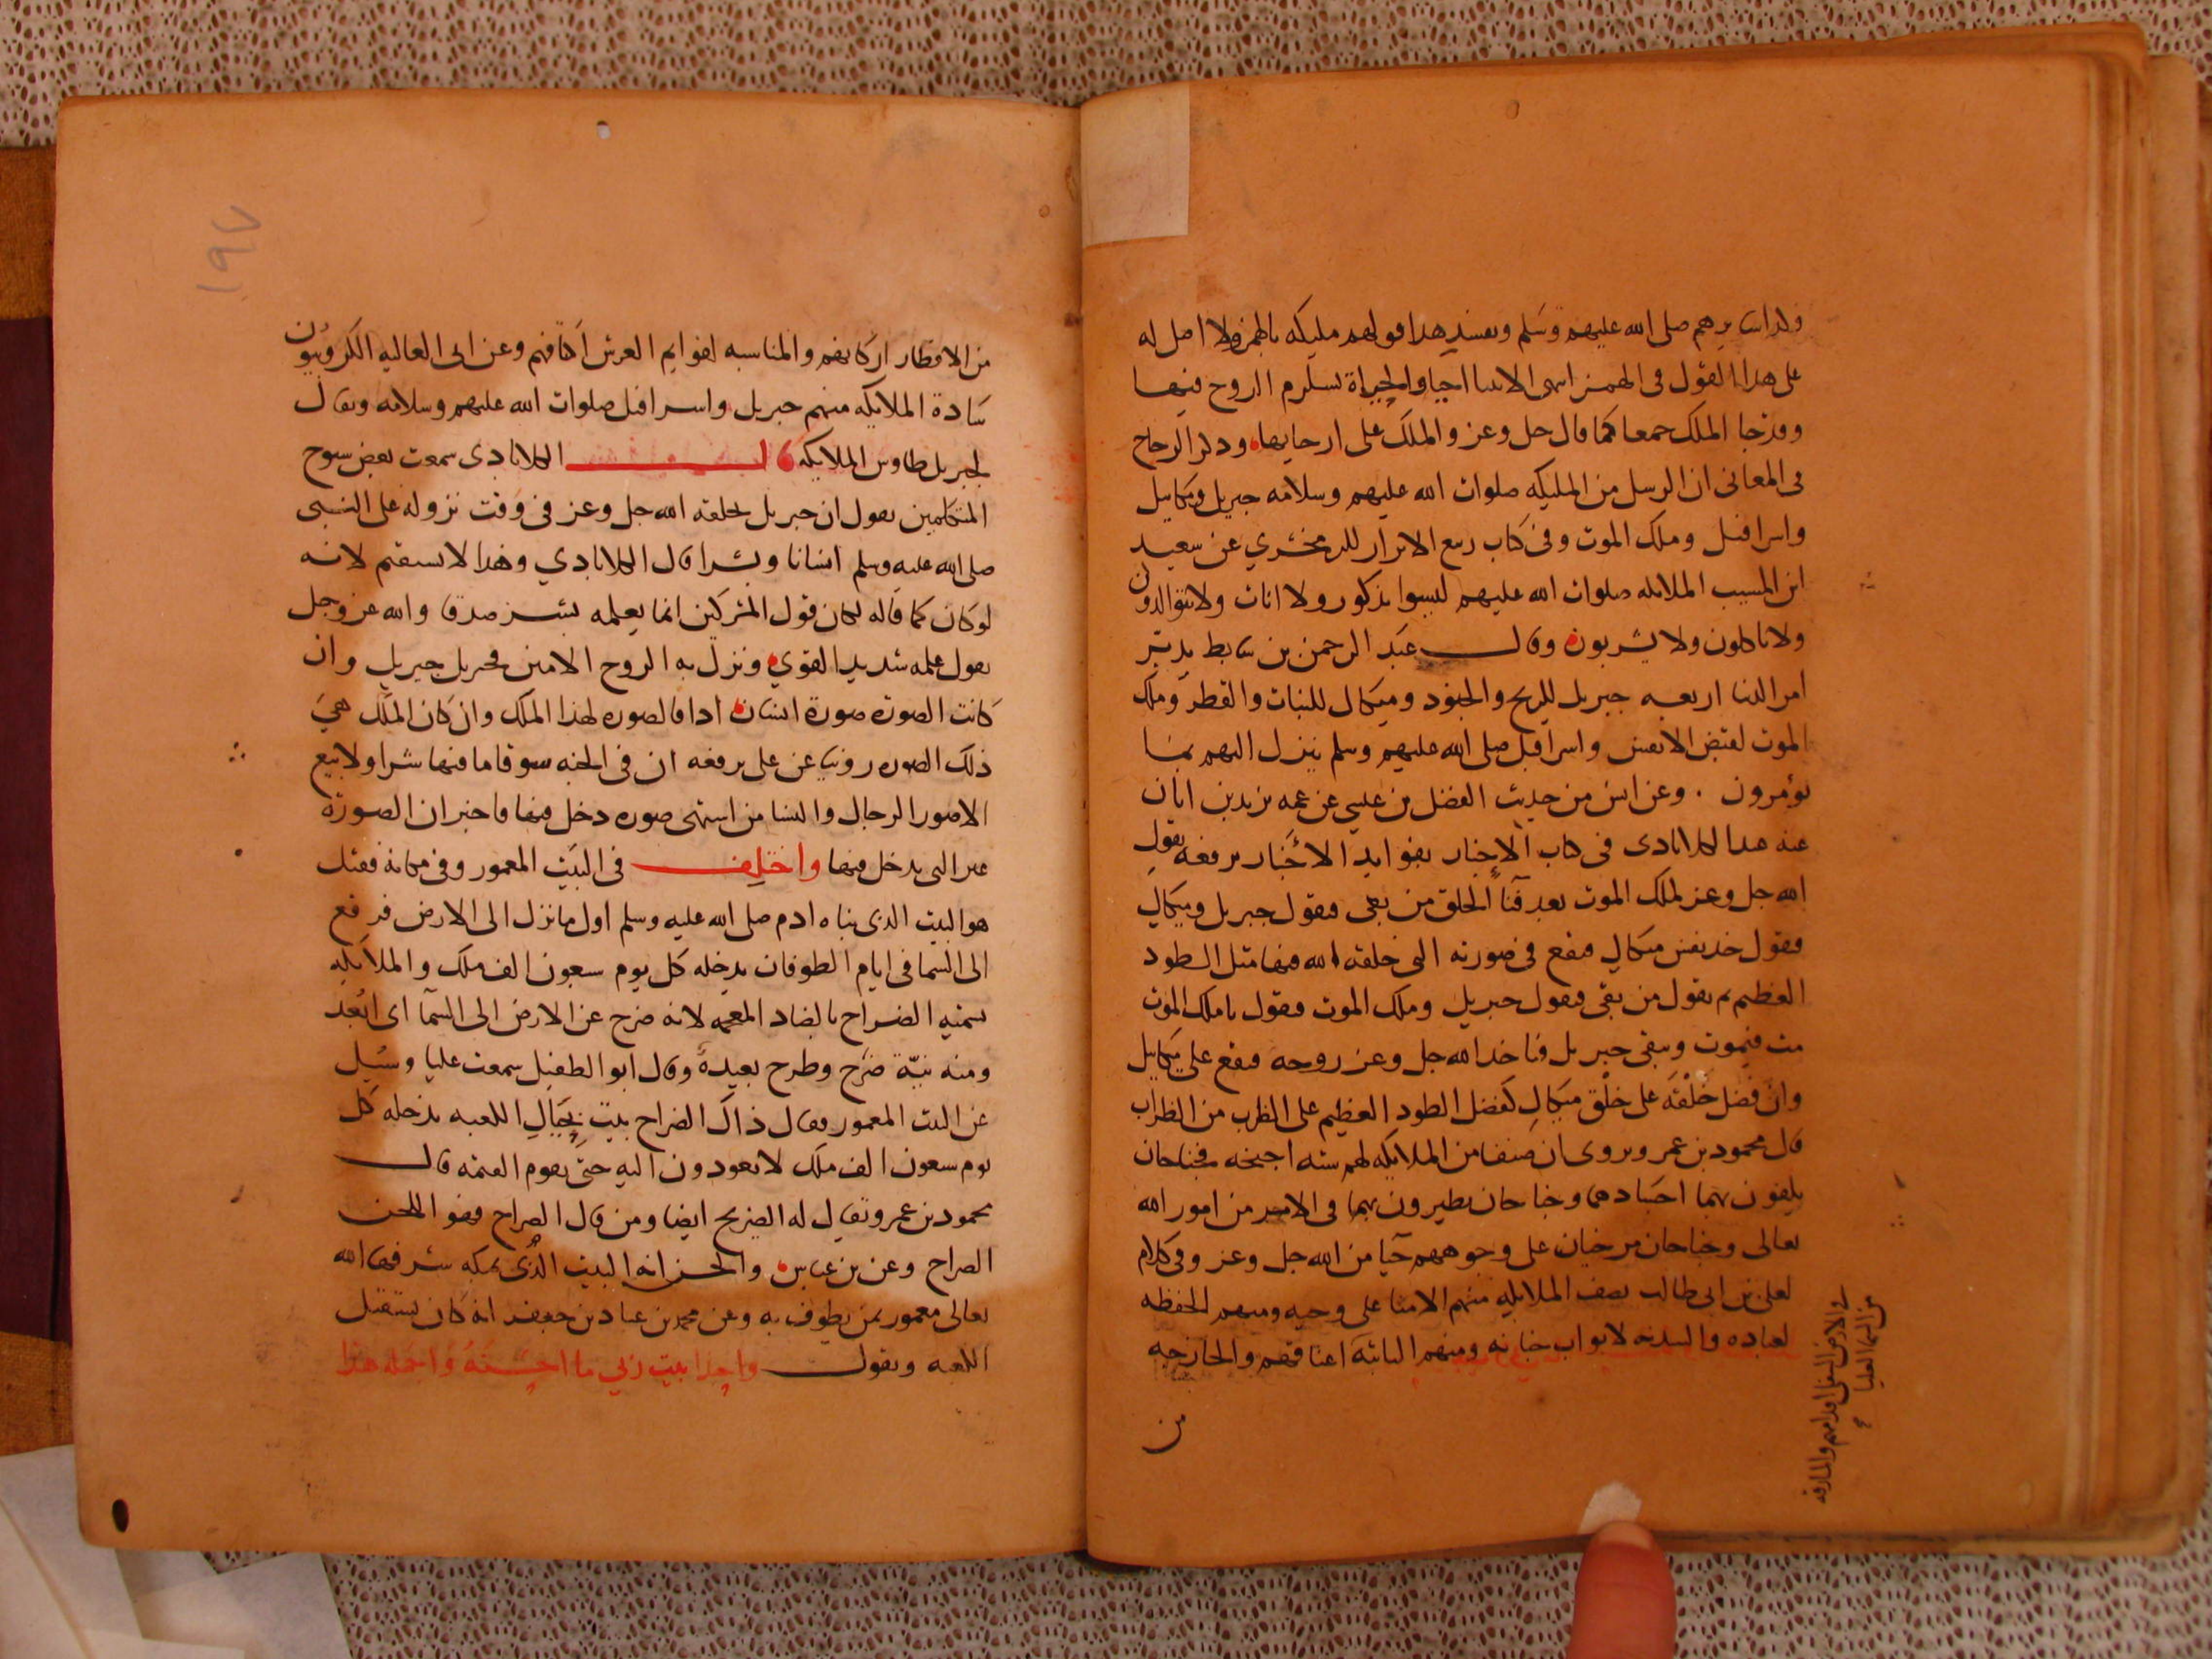 صلى الله عليهم وسلم هذا قولهم مليكه بالهمز ولا اصل له
على هذا القول فى الهمز الروح فيها
وقد جا الملك جمعا كما قال جل وعز والملك على ارجايها وذكر الزجاج
فى المعانى ان الرسل من المليكه صلوات الله عليهم وسلامه جبريل وميكاييل
واسرافيل وملك الموت وفى كتاب ربيع الابرار للزمخشري عن سعيد
ابن المسيب الملايكه صلوات الله عليهم ليسوا بذكور ولا اناث ولا يتوالدون
ولا ياكلون ولا يشربون وقال عبد الرحمن بن سابط يدبر
امر الدنيا اربعه جبريل للريح والجنود وميكال للنبات والقطر وملك
الموت لقبض الانفس واسرافيل صلى الله عليهم وسلم ينزل اليهم بما
يؤمرون . وعن انس من حديث الفضل بن عيسى عن عمه يزيد بن ابان
عنه الكلاباذى فى كتاب الاخبار بفوايد الاخبار يرفعه يقول
الله جل وعز لملك الموت بعد فنا الخلق من بقى فيقول جبريل وميكال
فيقول خذ نفس ميكال فيقع فى صورته التى خلقه الله فيها مثل الطود
العظيم ثم يقول من بقى فيقول جبريل وملك الموت فيقول يا ملك الموت
مت فيموت ويبقى جبريل فياخذ الله جل وعز روحه فيقع على ميكاييل
وان فضل خلقه على خلق ميكال كفضل الطود العظيم على الظرب من الظراب
قال محمود بن عمر ويروى ان صنفا من الملايكه لهم سته اجنحه فجناحان
يلفون بهما اجسادهم وجناحان يطيرون بهما فى الامر من امور الله
تعالى وجناحان مرخيان على وجوههم حيا من الله جل وعز وفى كلام
لعلى بن ابى طالب يصف الملايكه منهم الامنا على وحيه ومنهم الحفظه
لعباده والسدنه لابواب جنانه ومنهم الثابته اعناقهم والخارجه
من
فى الارض السفلى اقدامهم والمارقه
من السما العليا
١٩٧
من الاقطار اركانهم والمناسبه لقوايم العرش اكتافهم وعن ابى العاليه الكروبيون
سادة الملايكه منهم جبريل واسرافيل صلوات الله عليهم وسلامه ويقال
لجبريل طاوس الملايكه الكلاباذى سمعت بعض شيوخ
المتكلمين يقول ان جبريل يخلقه الله جل وعز فى وقت نزوله على النبى
صلى الله عليه وسلم انسانا وبشرا قال الكلاباذي وهذا لا يستقيم لانه
لو كان كما قاله لكان قول المشركين انما يعلمه بشر صدقا والله عز وجل
يقول علمه شديد القوي ونزل به الروح الامين فجبريل جبريل وان
كانت الصوره صورة انسان اذا فالصوره لهذا الملك وان كان الملك هي
ذلك الصوره روينا عن على يرفعه ان فى الجنه سوقا ما فيها شرا ولا بيع
الا صور الرجال والنسا من اشتهى صوره دخل فيها فاخبر ان الصورة
غير التى يدخل فيها واختلف فى البيت المعمور وفى مكانه فقيل
هو البيت الذى بناه ادم صلى الله عليه وسلم اول ما نزل الى الارض فرفع
الى السما فى ايام الطوفان يدخله كل يوم سبعون الف ملك والملايكه
تسميه الضراح بالضاد المعجمه لانه ضرح عن الارض الى السمآ اى ابعد
ومنه نيّة ضرح وطرح بعيدة وقال ابو الطفيل سمعت عليا وسيل
عن البيت المعمور فقال ذاك الضراح بيت بحيال الكعبه يدخله كل
يوم سبعون الف ملك لا يعودون اليه حتى يقوم القيمه قال
محمود بن عمر ويقال له الضريح ايضا ومن قال الصراح فهو اللحن
الصراح وعن بن عباس والحسن انه البيت الذى بمكه شرفها الله
تعالى معمور بمن يطوف به وعن محمد بن عباد بن جعفر انه كان يستقبل
الكعبه ويقول واحدا بيت ربي ما احسنه واجمله هذا